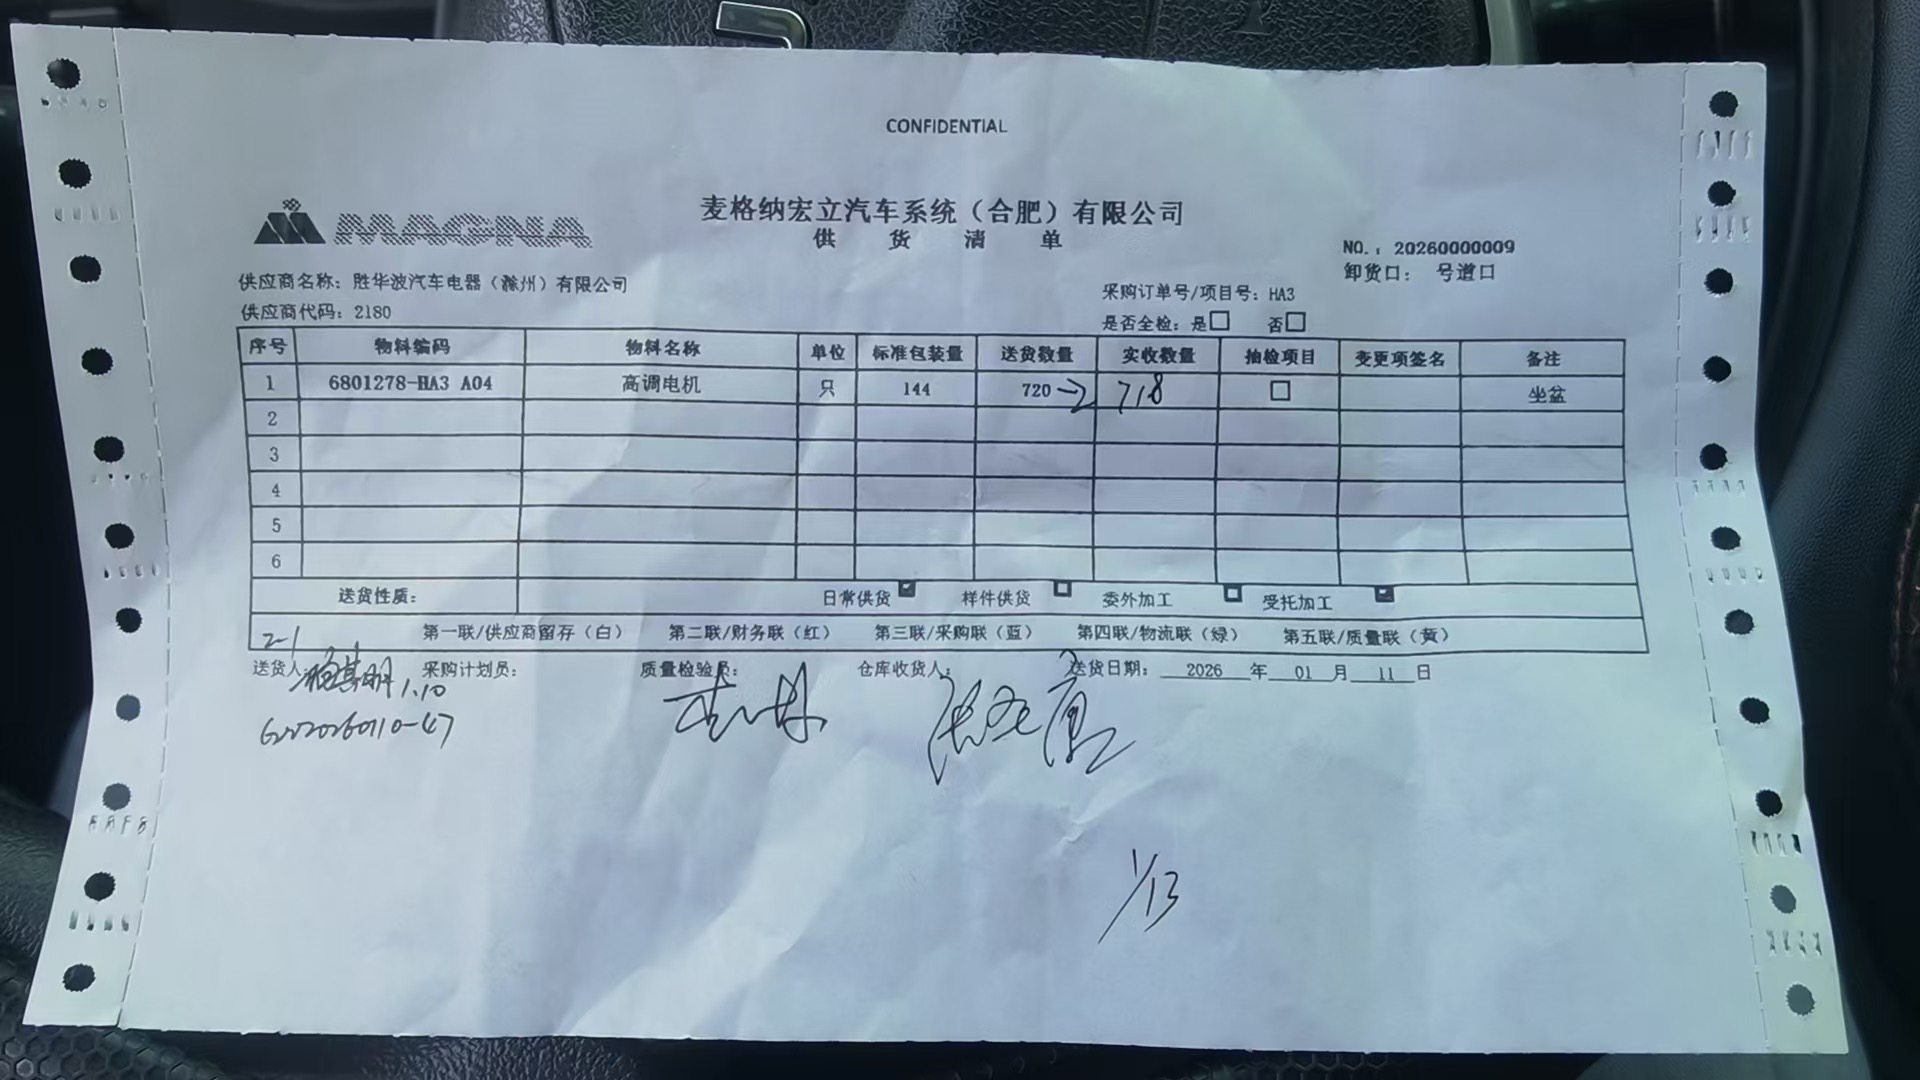 CONFIDENTIAL
MAGNA
麦格纳宏立汽车系统（合肥）有限公司
供 货 清 单
NO.：20260000009
卸货口： 号道口
供应商名称：胜华波汽车电器（滁州）有限公司
采购订单号/项目号：HA3
供应商代码：2180
是否全检：是□ 否□
序号 物料编码 物料名称 单位 标准包装量 送货数量 实收数量 抽检项目 变更项签名 备注
1 6801278-HA3 A04 高调电机 只 144 720→ 718 □ 坐盆
2
3
4
5
6
送货性质： 日常供货 样件供货 委外加工 受托加工
2-1
第一联/供应商留存（白） 第二联/财务联（红） 第三联/采购联（蓝） 第四联/物流联（绿） 第五联/质量联（黄）
送货人： 1.10 采购计划员： 质量检验员： 仓库收货人： 送货日期： 2026 年 01 月 11 日
1/13